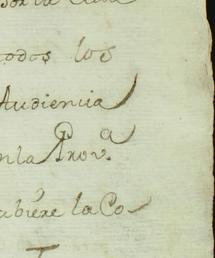 todos los
Audiencia
en la Prov.ª
ubiére la Co-